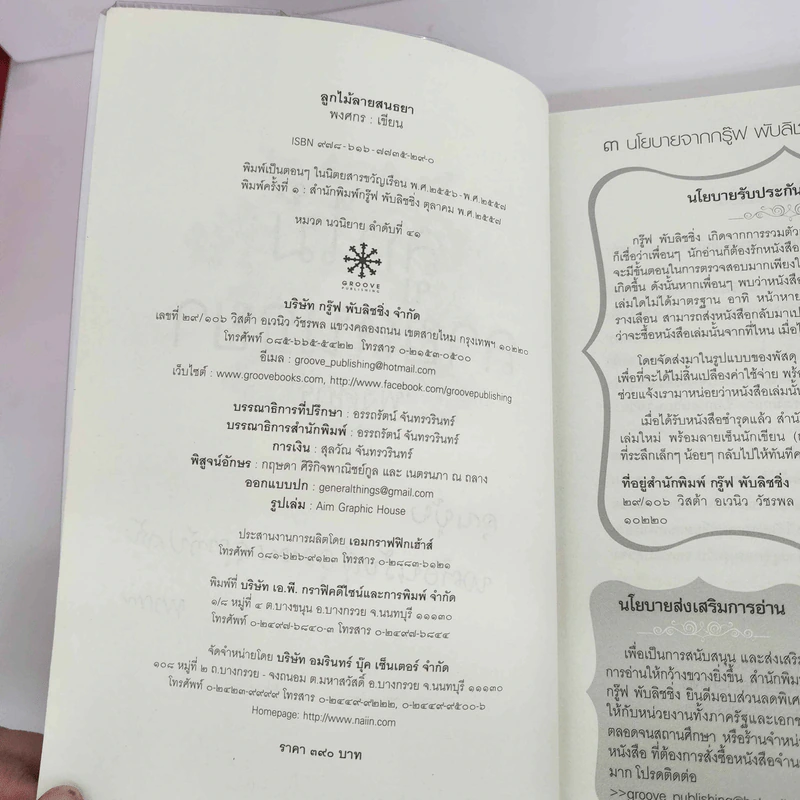 ลูกไม้ลายสนธยา
พงศกร : เขียน
ISBN ๙๗๘-๖๑๖-๗๗๓๕-๒๙-๐
พิมพ์เป็นตอนๆ ในนิตยสารขวัญเรือน พ.ศ.๒๕๕๖-พ.ศ.๒๕๕๗
พิมพ์ครั้งที่ ๑ : สำนักพิมพ์กรู๊ฟ พับลิชชิ่ง ตุลาคม พ.ศ.๒๕๕๗
หมวด นวนิยาย ลำดับที่ ๔๑
GROOVE
PUBLISHING
บริษัท กรู๊ฟ พับลิชชิ่ง จำกัด
เลขที่ ๒๙/๑๐๖ วิสต้า อเวนิว วัชรพล แขวงคลองถนน เขตสายไหม กรุงเทพฯ ๑๐๒๒๐
โทรศัพท์ ๐๘๕-๖๖๕-๕๔๒๒ โทรสาร ๐-๒๑๕๓-๐๕๐๐
อีเมล : groove_publishing@hotmail.com
เว็บไซต์ : www.groovebooks.com, http://www.facebook.com/groovepublishing
บรรณาธิการที่ปรึกษา : อรรถรัตน์ จันทรวรินทร์
บรรณาธิการสำนักพิมพ์ : อรรถรัตน์ จันทรวรินทร์
การเงิน : สุลวัณ จันทรวรินทร์
พิสูจน์อักษร : กฤษดา ศิริกิจพาณิชย์กูล และ เนตรนภา ณ ถลาง
ออกแบบปก : generalthings@gmail.com
รูปเล่ม : Aim Graphic House
ประสานงานการผลิตโดย เอมกราฟฟิกเฮ้าส์
โทรศัพท์ ๐๘๑-๖๒๖-๙๑๒๓ โทรสาร ๐-๒๘๘๓-๖๑๒๑
พิมพ์ที่ บริษัท เอ.พี. กราฟิคดีไซน์และการพิมพ์ จำกัด
๑/๘ หมู่ที่ ๔ ต.บางขนุน อ.บางกรวย จ.นนทบุรี ๑๑๑๓๐
โทรศัพท์ ๐-๒๔๙๗-๖๘๔๐-๓ โทรสาร ๐-๒๔๙๗-๖๘๔๔
จัดจำหน่ายโดย บริษัท อมรินทร์ บุ๊ค เซ็นเตอร์ จำกัด
๑๐๘ หมู่ที่ ๒ ถ.บางกรวย - จงถนอม ต.มหาสวัสดิ์ อ.บางกรวย จ.นนทบุรี ๑๑๑๓๐
โทรศัพท์ ๐-๒๔๒๓-๙๙๙๙ โทรสาร ๐-๒๔๔๙-๙๒๒๒, ๐-๒๔๔๙-๙๕๐๐-๖
Homepage: http://www.naiin.com
ราคา ๓๙๐ บาท
๓ นโยบายจากกรู๊ฟ พับลิช
นโยบายรับประกัน
กรู๊ฟ พับลิชชิ่ง เกิดจากการรวมตัว
ก็เชื่อว่าเพื่อนๆ นักอ่านก็ต้องรักหนังสือ
จะมีขั้นตอนในการตรวจสอบมากเพียงใ
เกิดขึ้น ดังนั้นหากเพื่อนๆ พบว่าหนังสือ
เล่มใดไม่ได้มาตรฐาน อาทิ หน้าหาย
รางเลือน สามารถส่งหนังสือกลับมาเป
ว่าจะซื้อหนังสือเล่มนั้นจากที่ไหน เมื่อไ
โดยจัดส่งมาในรูปแบบของพัสดุ
เพื่อที่จะได้ไม่สิ้นเปลืองค่าใช้จ่าย พร้
ช่วยแจ้งเรามาหน่อยว่าหนังสือเล่มนั้น
เมื่อได้รับหนังสือชำรุดแล้ว สำนั
เล่มใหม่ พร้อมลายเซ็นนักเขียน
ที่ระลึกเล็กๆ น้อยๆ กลับไปให้ทันทีค
ที่อยู่สำนักพิมพ์ กรู๊ฟ พับลิชชิ่ง
๒๙/๑๐๖ วิสต้า อเวนิว วัชรพล
๑๐๒๒๐
นโยบายส่งเสริมการอ่าน
เพื่อเป็นการสนับสนุน และส่งเสริม
การอ่านให้กว้างขวางยิ่งขึ้น สำนักพิม
กรู๊ฟ พับลิชชิ่ง ยินดีมอบส่วนลดพิเศ
ให้กับหน่วยงานทั้งภาครัฐและเอกช
ตลอดจนสถานศึกษา หรือร้านจำหน่
หนังสือ ที่ต้องการสั่งซื้อหนังสือจำนว
มาก โปรดติดต่อ